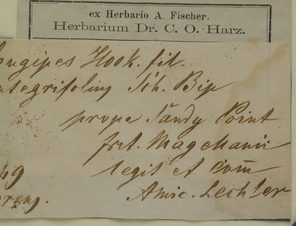 ex Herbario A. Fischer.
Herbarium Dr. C. O. Harz.
ongipes Hook. fil.
ntegrifolius Sch. Bip
prope Sandy Point
fret. Magellanic
legit et com̄
Amic. Lechler
49